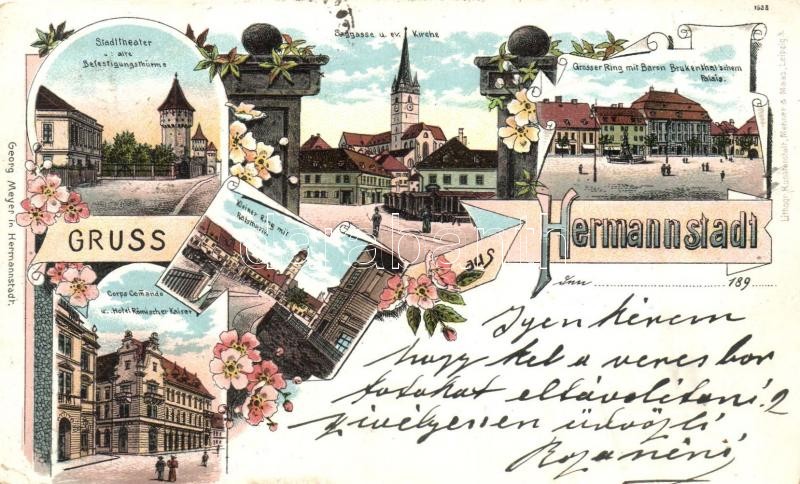 1688
Stadttheater
u. alte
Befestigungsthürme
Saggasse u. ev. Kirche
Grosser Ring mit Baron Brukenthal'schem
Palais.
Kleiner Ring mit
Ratsthurm.
GRUSS
aus
Hermannstadt
den 189
Corps Comando
u. Hotel Römischer Kaiser
Georg Meyer in Hermannstadt.
Lithogr. Kunstanstalt, Rosner & Maas, Leipzig
darabanth
Igen kérem
hogy kel a veres bor
fotokat eltávolitani?
szivélyesen üdvözli
Roza néni